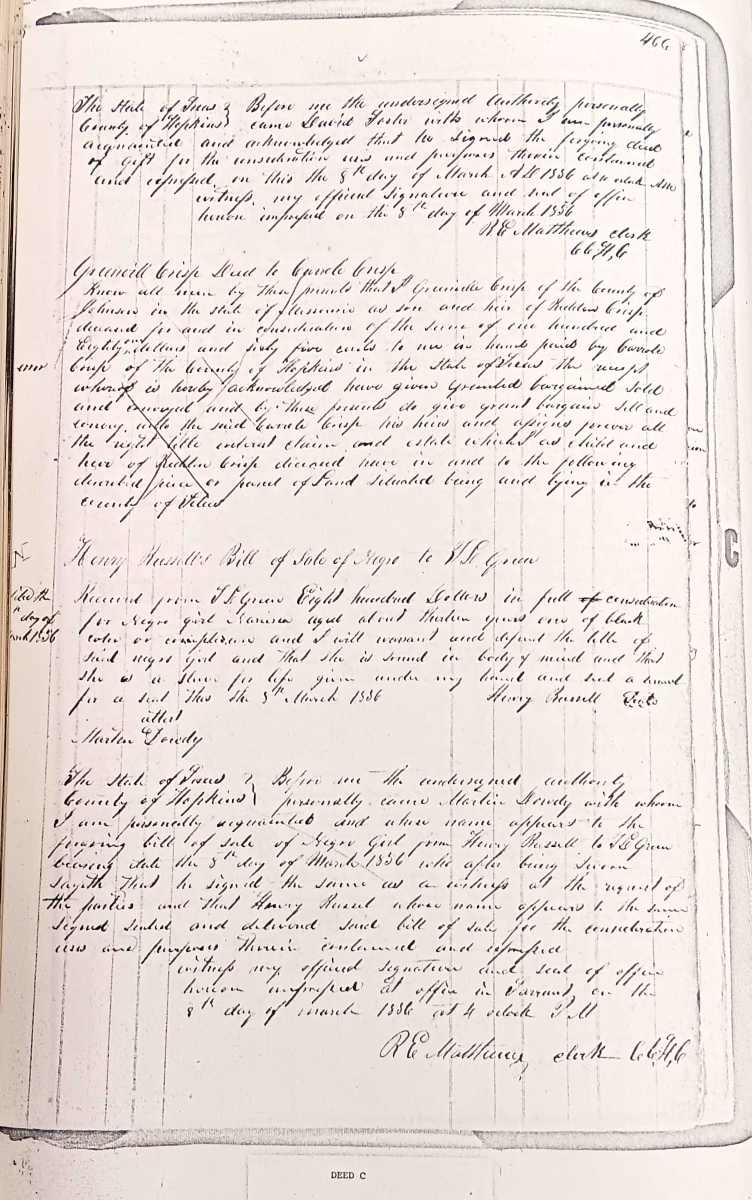 466
The State of Texas } Before me the undersigned Authority personally
County of Hopkins } came David Foster with whom I am personally
acquainted and acknowledged that he signed the forgoing deed
of gift for the consideration uses and purposes therein contained
and expressed, on this the 8th day of March AD 1856 at oclock
witness, my official signature and seal of office
hereon impressed on the 8th day of March 1856
R E Matthews clerk
CCH,C
Greenvill Crisp Deed to Carrole Crisp
Know all men by these presents that I Crisp of the County of
Johnson in the state of as son and heir of Crisp
deceased for and in consideration of the sum of one hundred and
Eighty dollars and sixty five cents to me in hand paid by Carrole
error
Crisp of the County of Hopkins in the State of Texas the receipt
whereof is hereby acknowledged have given granted bargained sold
and conveyed and by these presents do give grant bargain sell and
convey unto the said Carrole Crisp his heirs and assigns forever all
the right title interest claim and estate which I as child and
heir of Crisp deceased have in and to the following
described piece or parcel of Land situated being and lying in the
county of Titus
Henry Russell's Bill of Sale of Negro to Green
filed the
8th day of
March 1856
Received from Green Eight hundred Dollars in full of consideration
for Negro girl aged about thirteen years one of black
color or complexion and I will warant and defend the title of
said negro girl and that she is sound in body & mind and that
she is a slave for life given under my hand and seal a scrawl
for a seal this the 8th March 1856 Henry Russell Seal
attest
Martin Dowdy
The State of Texas } Before me the undersigned authority
County of Hopkins } personally came Martin Dowdy with whom
I am personally acquainted and whose name appears to the
forgoing bill of sale of Negro Girl from Henry Russell to Green
bearing date the 8th day of March 1856 who after being sworn
sayeth that he signed the same as a witness at the request of
the parties and that Henry Russel whose name appears to the same
signed sealed and delivered said bill of sale for the consideration
uses and purposes therein contained and expressed
witness my official signature and seal of office
hereon impressed at office in Tarrant on the
8th day of March 1856 at 4 oclock P M
R E Matthews clerk CCH,C
C
DEED C